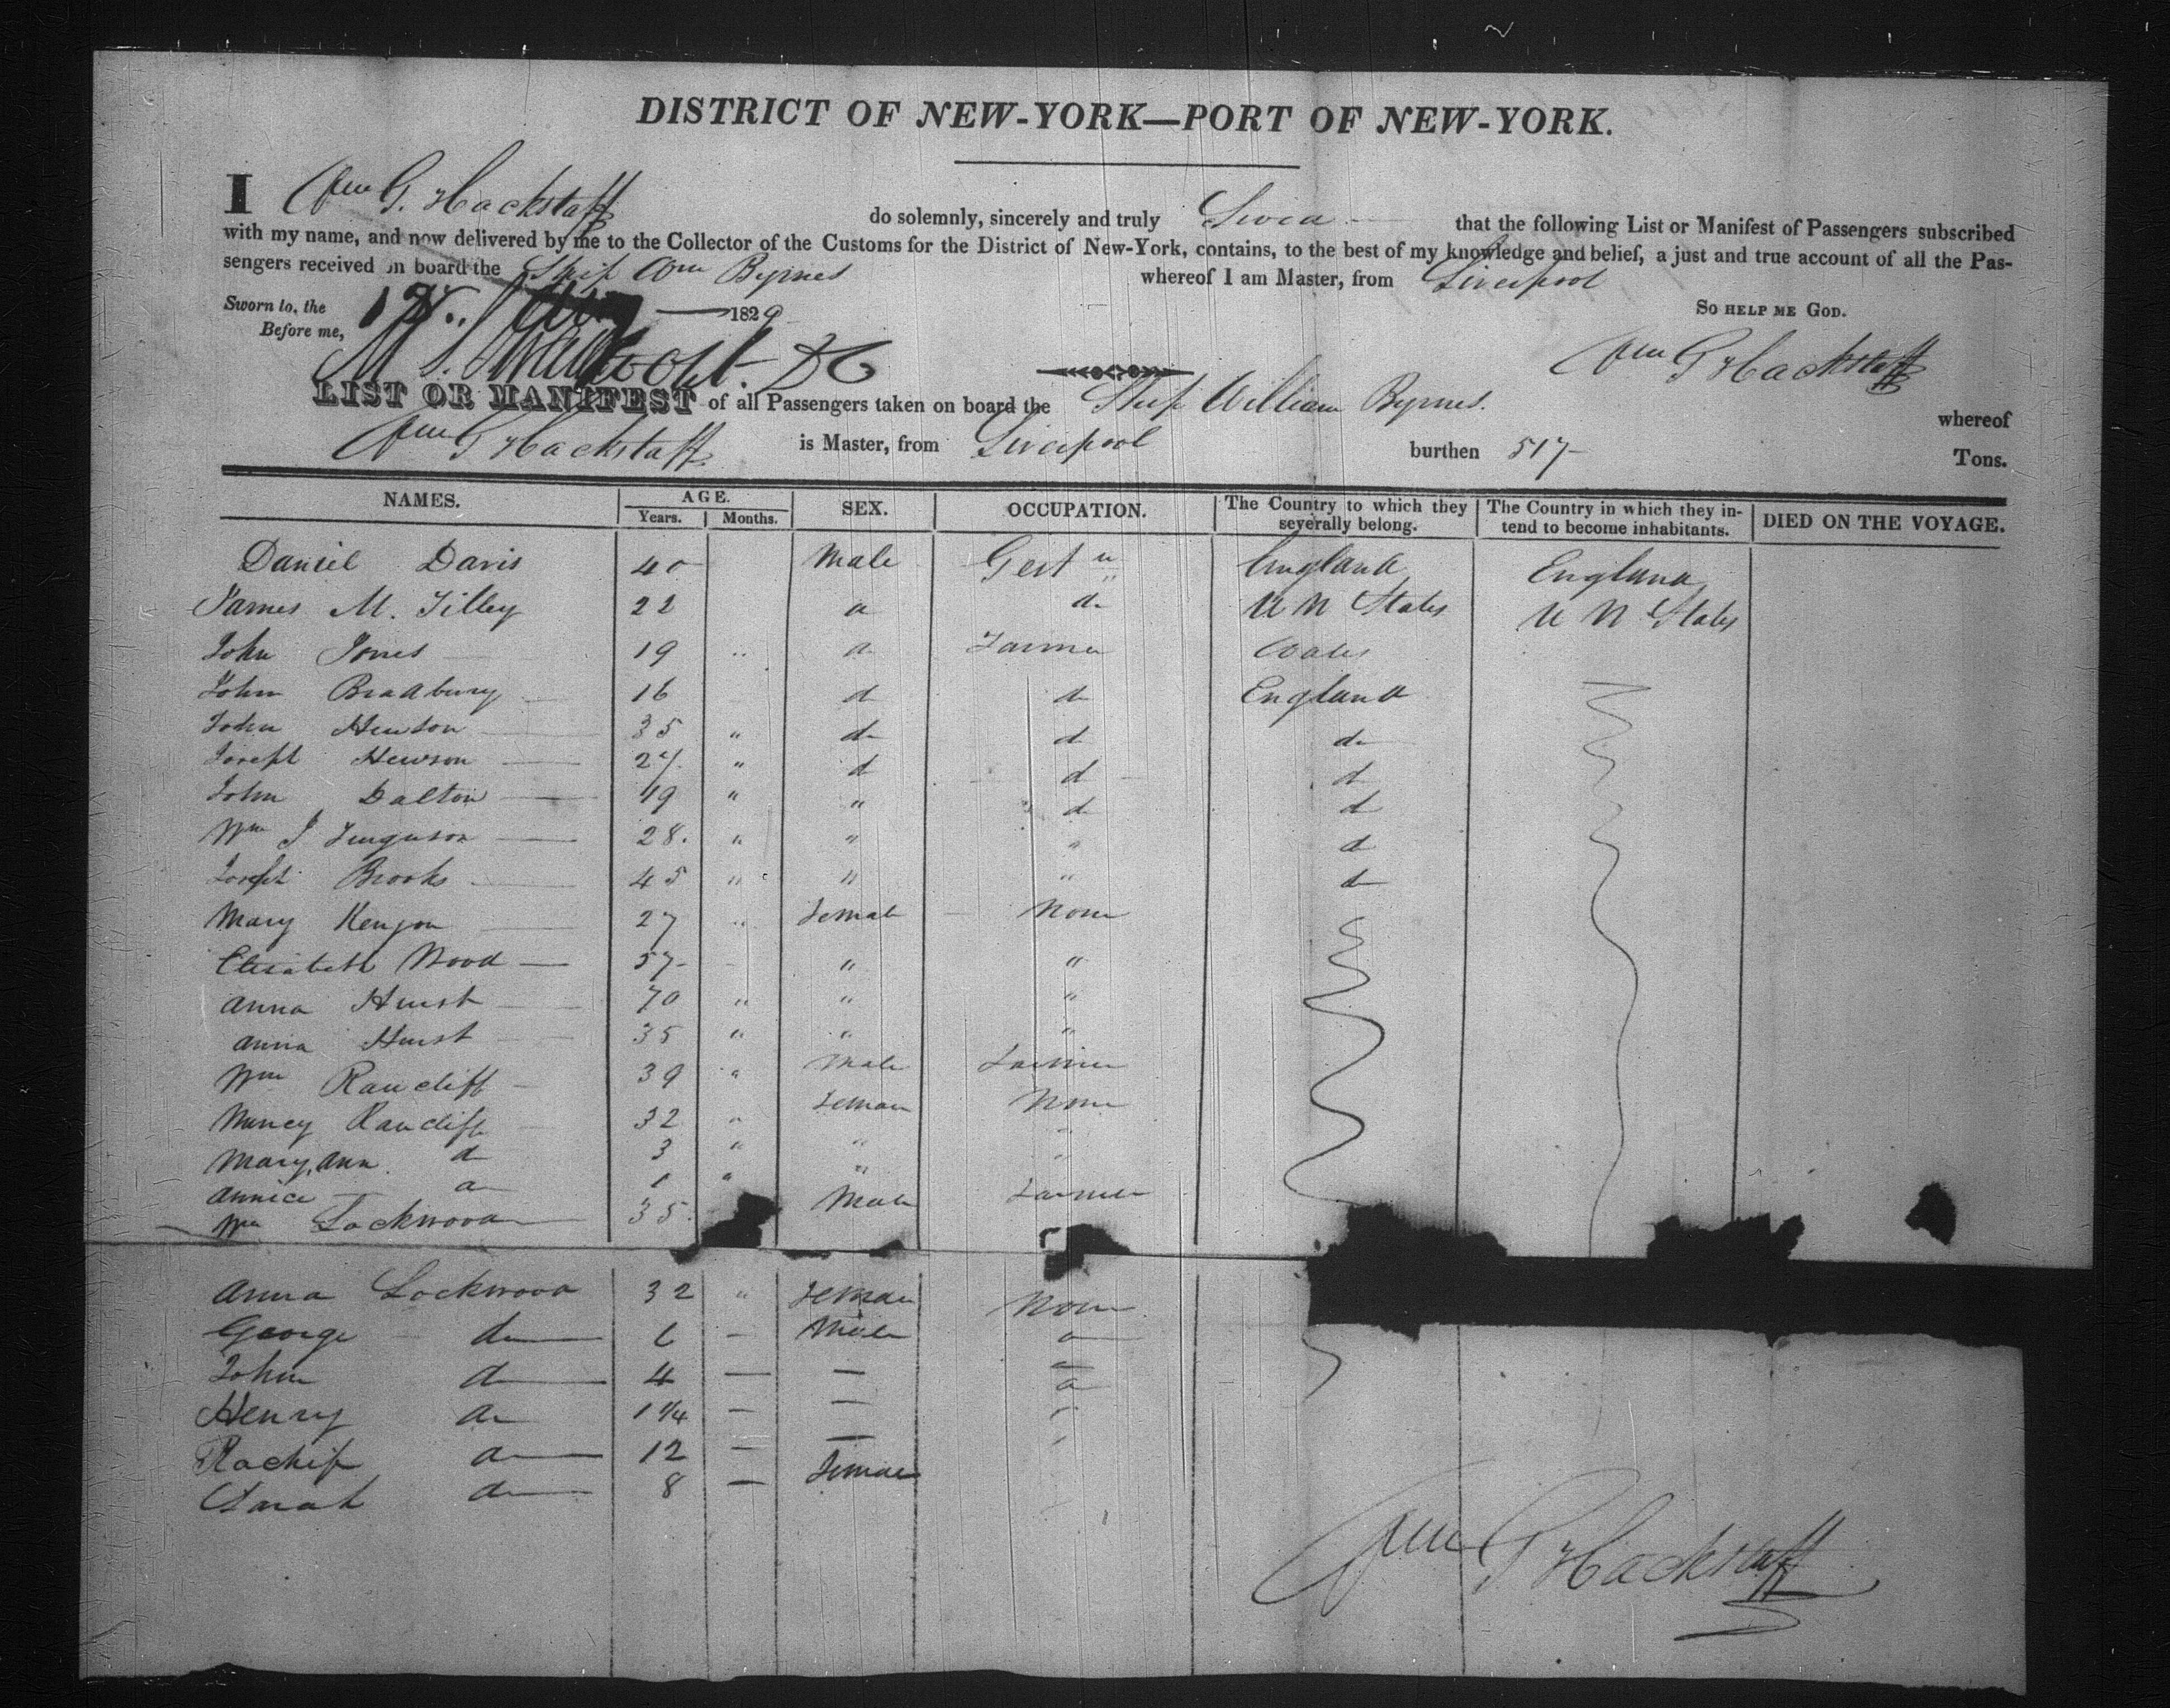 DISTRICT OF NEW-YORK—PORT OF NEW-YORK.
I Wm G. Hackstaff do solemnly, sincerely and truly Swear that the following List or Manifest of Passengers subscribed
with my name, and now delivered by me to the Collector of the Customs for the District of New-York, contains, to the best of my knowledge and belief, a just and true account of all the Pas-
sengers received on board the Ship Wm Byrnes whereof I am Master, from Liverpool
Sworn to, the 1829 SO HELP ME GOD.
Before me, Wm G Hackstaff
LIST OR MANIFEST of all Passengers taken on board the Ship William Byrnes. whereof
Wm G Hackstaff is Master, from Liverpool burthen 517 Tons.
NAMES. AGE. Years. Months. SEX. OCCUPATION. The Country to which they severally belong. The Country in which they in-tend to become inhabitants. DIED ON THE VOYAGE.
Daniel Davis 40 Male Gent n England England
James M. Tilley 22 do do U N States U N States
John Jones 19 " do Farmer Wales
John Bradbury 16 do do England
John Hewson 35 " do do do
Joseph Hewson 27 " do do do
John Dalton 19 " " do do
Wm J Furguson 28. " " " do
Joseph Brooks 45 " " " do
Mary Kenyon 27 " Female None
Elizabeth Wood 57 " "
Anna Hurst 70 " " "
Anna Hurst 35 " " "
Wm Rancliff 39 " Male Farmer
Nancy Rancliff 32 " Female None
Mary Ann do 3 " " "
Annice do 1 " "
Wm Lockwood 35 Male Farmer
Anna Lockwood 32 " Female None
George do 6 — Male do
John do 4 — — do
Henry do 1 1/4 — —
do 12 — —
Sarah do 8 — Female
Wm G Hackstaff